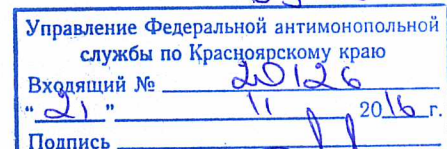 Управление Федеральной антимонопольной
службы по Красноярскому краю
Входящий № 20126
"21" 11 2016 г.
Подпись